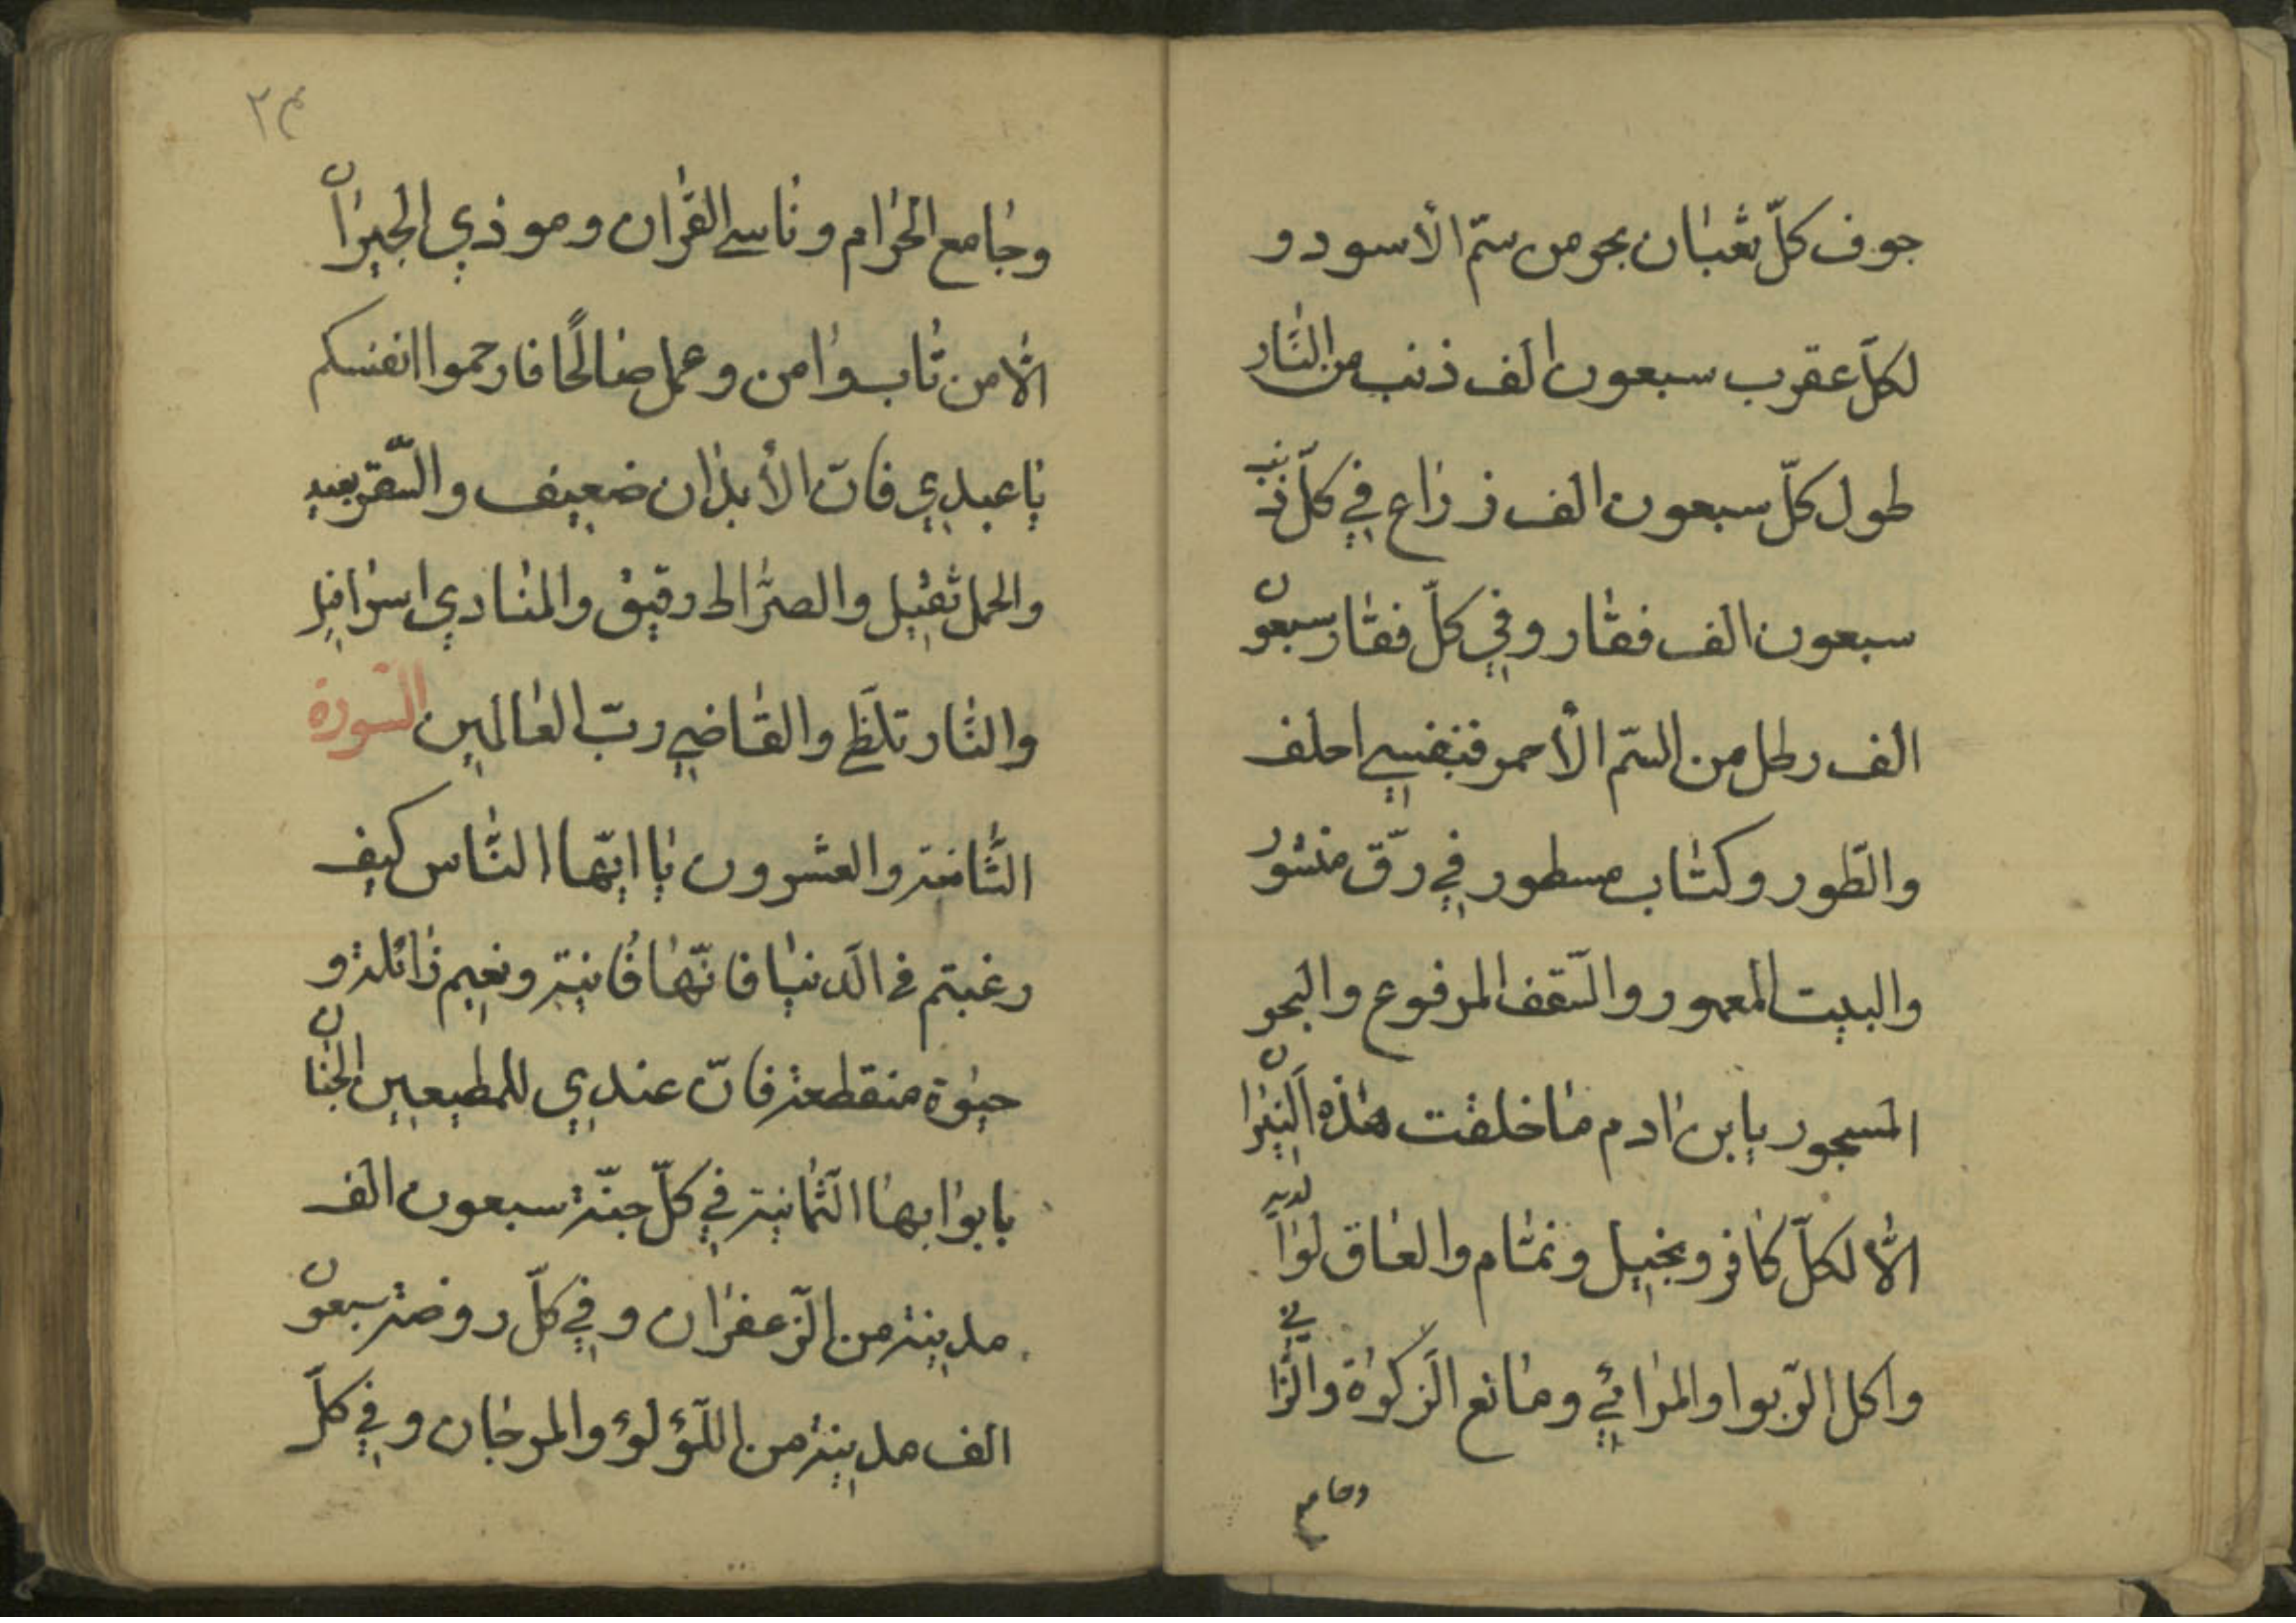 جوف كلّ ثعبان بحر من سمّ الأسود و
لكلّ عقرب سبعون الف ذنب من النّار
طول كلّ سبعون الف ذراع في كلّ ذنب
سبعون الف فقار وفي كلّ فقار سبعون
الف رطل من السّم الأحمر فبنفسي احلف
والطّور وكتاب مسطور في رقّ منشور
والبيت المعمور والسّقف المرفوع والبحر
المسجور يا بن ادم ما خلقت هذه النّيران
الّا لكلّ كافر وبخيل ونمّام والعاق لوالديه
واكل الرّبوا والمرائي ومانع الزكوة والزّاني
وجامع
٢٣
وجامع الحرام وناسي القران وموذي الجيران
الّا من تاب وامن وعمل صالحًا فارحموا انفسكم
يا عبدي فانّ الأبدان ضعيف والسّفر بعيد
والحمل ثقيل والصّراط دقيق والمنادي اسرافيل
والنّار تلظّى والقاضي ربّ العالمين السّورة
الثّامنة والعشرون يا ايّها النّاس كيف
رغبتم في الدّنيا فانّها فانية ونعيم زائلة و
حيوة منقطعة فانّ عندي للمطيعين الجنان
بابوابها الثّمانية في كلّ جنّة سبعون الف
مدينة من الزّعفران وفي كلّ روضة سبعون
الف مدينة من اللّؤلؤ والمرجان وفي كلّ